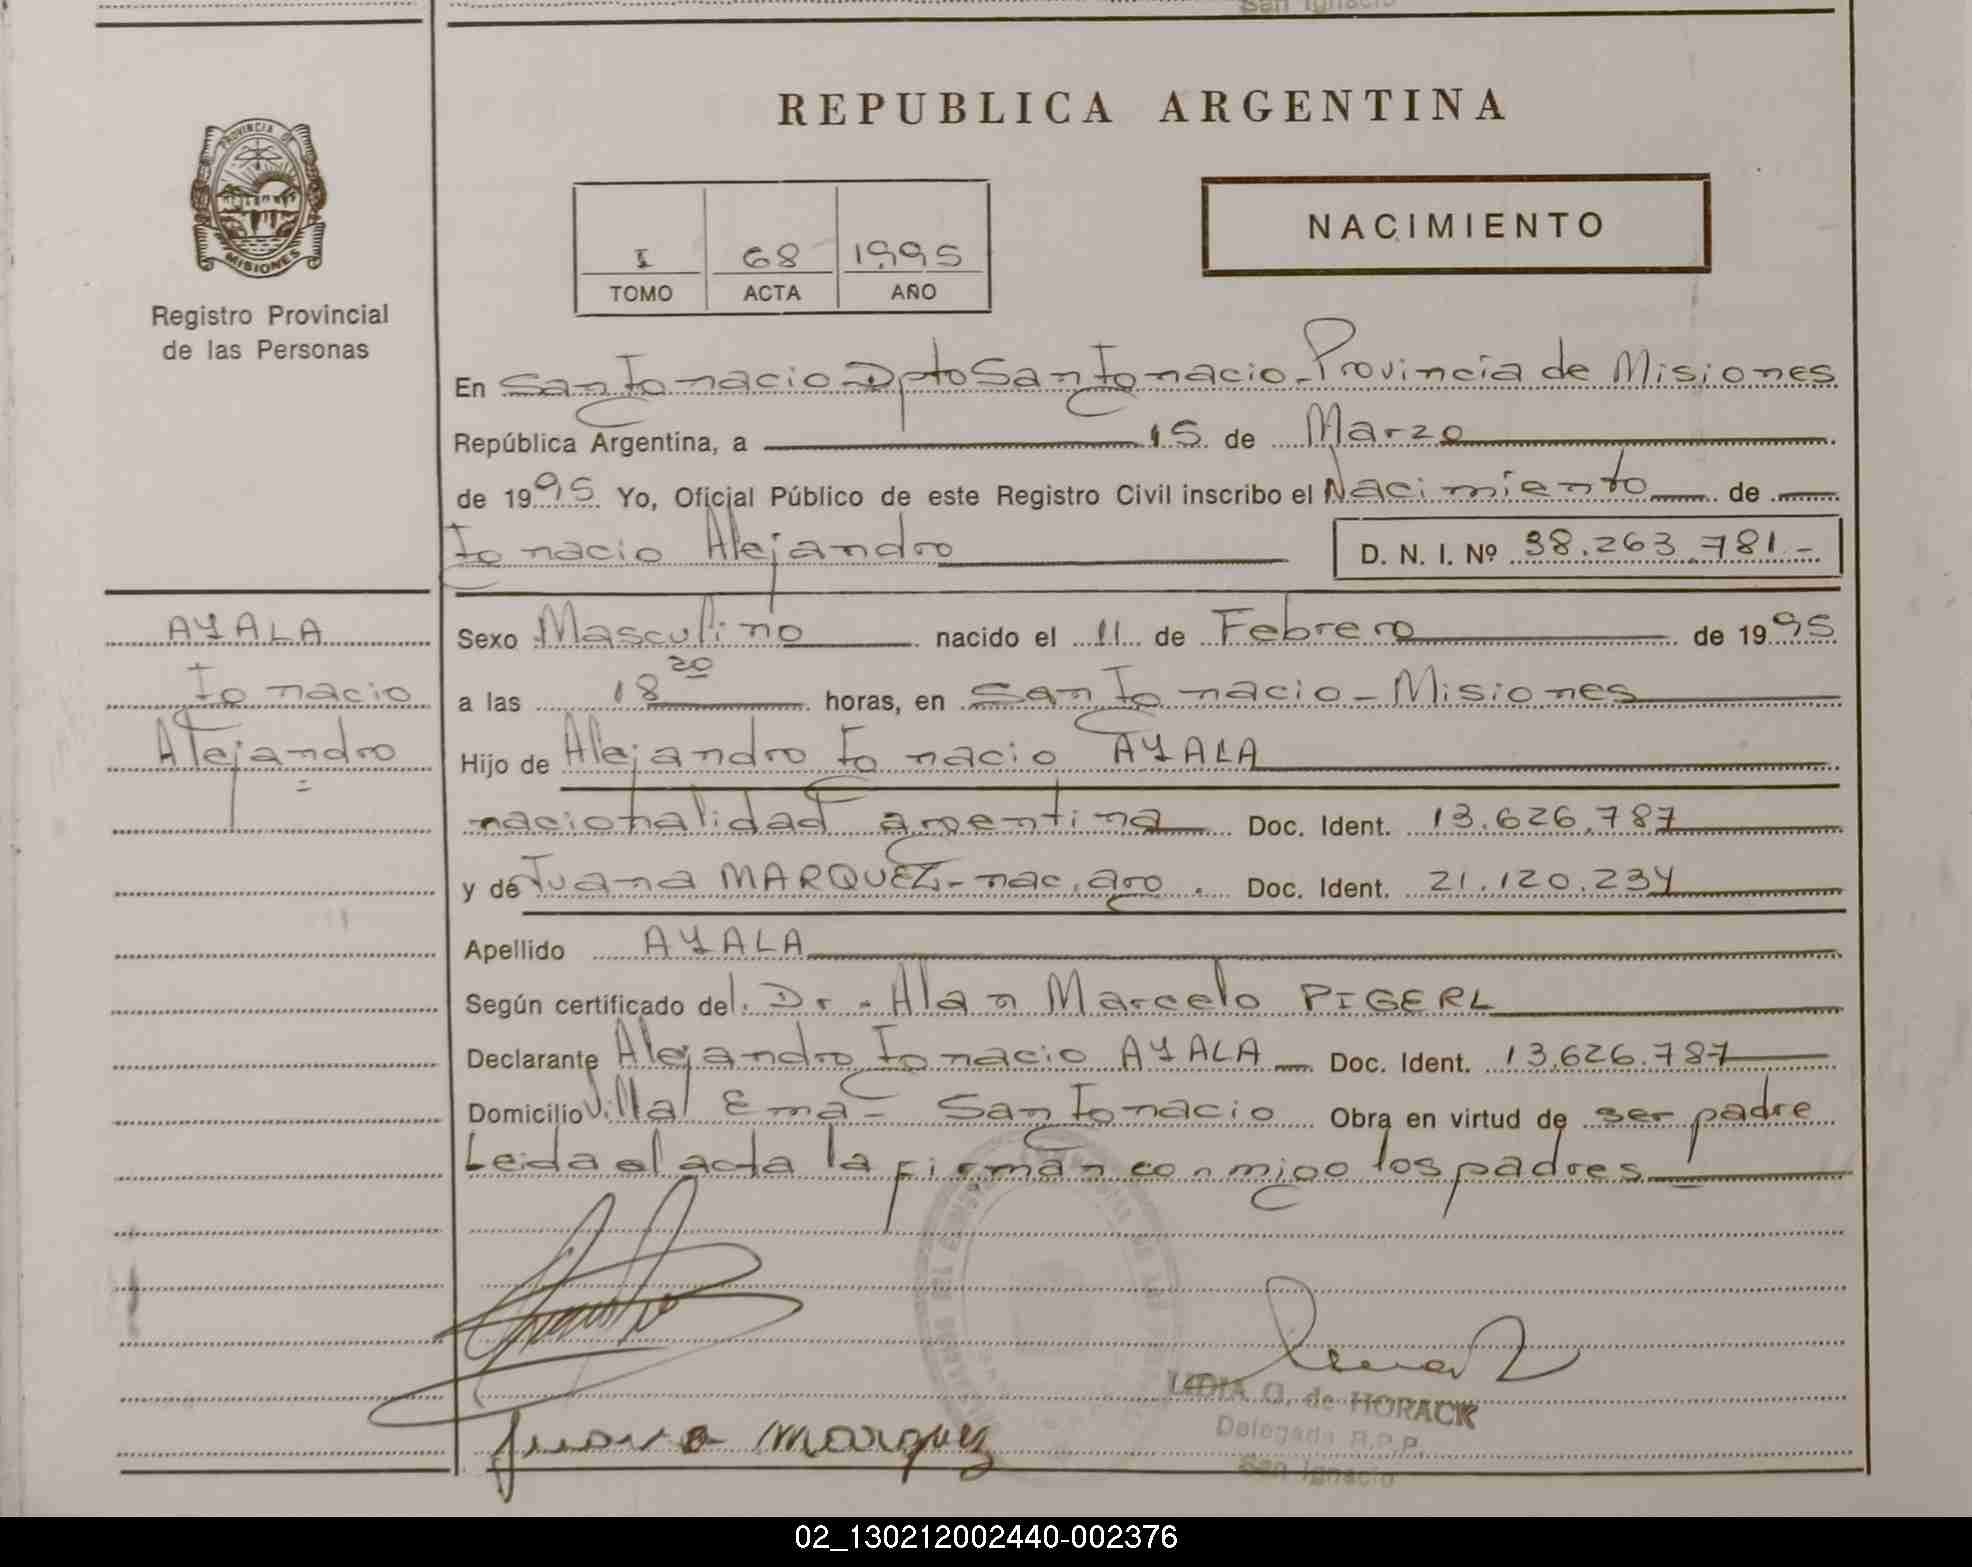 San Ignacio
PROVINCIA DE
MISIONES
Registro Provincial
de las Personas
REPUBLICA ARGENTINA
NACIMIENTO
I 68 1995
TOMO ACTA AÑO
En San Ignacio Dpto San Ignacio - Provincia de Misiones
República Argentina, a 15 de Marzo
de 1995 Yo, Oficial Público de este Registro Civil inscribo el Nacimiento de
Ignacio Alejandro D. N. I. Nº 38.263.781 -
AYALA
Ignacio
Alejandro
Sexo Masculino nacido el 11 de Febrero de 1995
a las 18 20 horas, en San Ignacio - Misiones
Hijo de Alejandro Ignacio AYALA
nacionalidad argentina Doc. Ident. 13.626.787
y de Juana MARQUEZ - nac. arg. Doc. Ident. 21.120.234
Apellido AYALA
Según certificado del Dr. Alan Marcelo PIGERL
Declarante Alejandro Ignacio AYALA Doc. Ident. 13.626.787
Domicilio Villa Ema - San Ignacio Obra en virtud de ser padre
Leida el acta la firman conmigo los padres
LIDIA G. de HORACK
Delegada R.P.P.
San Ignacio
Juana Marquez
02_130212002440-002376